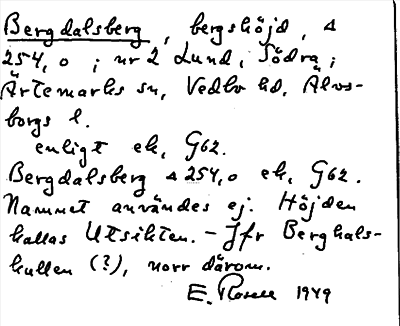 Bergdalsberg, bergshöjd, ▵
254,0 ; nr 2 Lund, Södra;
Ärtemarks sn, Vedbo hd, Älvs-
borgs l.
enligt ek, G62.
Bergdalsberg ▵ 254,0 ek, G62.
Namnet användes ej. Höjden
kallas Utsikten. – Jfr Berghals-
kullen (?), norr därom.
E. Rosell 1949